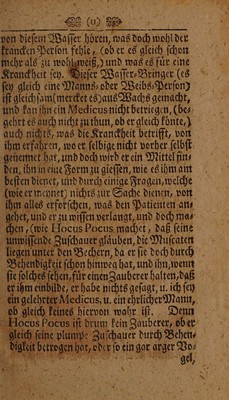 (11)
von diesem Wasser hören, was doch wohl der
krancken Person fehle, (ob er es gleich schon
mehr als zu wohl weiß,) und was es für eine
Kranckheit sey. Dieser Wasser-Bringer (es
sey gleich eine Manns- oder Weibs-Person)
ist gleichsam (mercket es) aus Wachs gemacht,
und kan ihn ein Medicus nicht betriegen, (be-
gehrt es auch nicht zu thun, ob er gleich könte,)
auch nichts, was die Kranckheit betrifft, von
ihm erfahren, wo er selbige nicht vorher selbst
genennet hat, und doch wird er ein Mittel fin-
den, ihn in eine Form zu giessen, wie es ihm am
besten dienet, und durch einige Fragen, welche
(wie er meynt) nichts zur Sache dienen, von
ihm alles erforschen, was den Patienten an-
gehet, und er zu wissen verlangt, und doch ma-
chen, (wie Hocus Pocus machet, daß seine
unwissende Zuschauer glauben, die Muscaten
liegen unter den Bechern, da er sie doch durch
Behendigkeit schon hinweg hat, und ihn, wenn
sie solches sehen, für einen Zauberer halten, daß
er ihm einbilde, er habe nichts gesagt, u. ich sey
ein gelehrter Medicus, u. ein ehrlicher Mann,
ob gleich keines hiervon wahr ist. Denn
Hocus Pocus ist drum kein Zauberer, ob er
gleich seine plumpe Zuschauer durch Behen-
digkeit betrogen hat, oder so ein gar arger Vo-
gel,